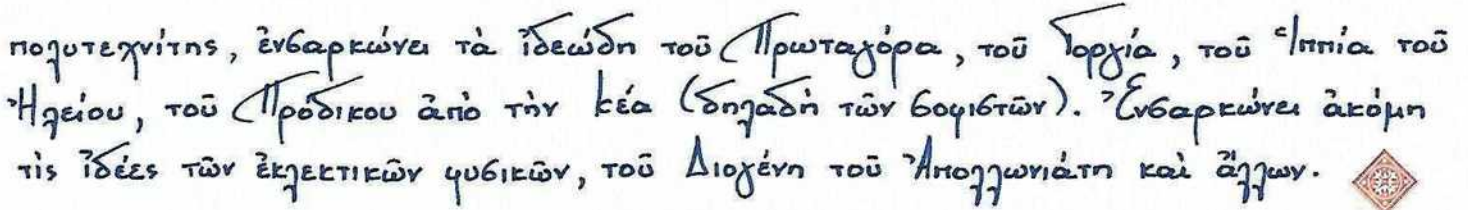 πολυτεχνίτης, ἐνσαρκώνει τὰ ἰδεώδη τοῦ Πρωταγόρα, τοῦ Γοργία, τοῦ Ἱππία τοῦ
Ἠλείου, τοῦ Πρόδικου ἀπὸ τὴν Κέα (δηλαδὴ τῶν σοφιστῶν). Ἐνσαρκώνει ἀκόμη
τὶς ἰδέες τῶν ἐκλεκτικῶν φυσικῶν, τοῦ Διογένη τοῦ Ἀπολλωνιάτη καὶ ἄλλων.